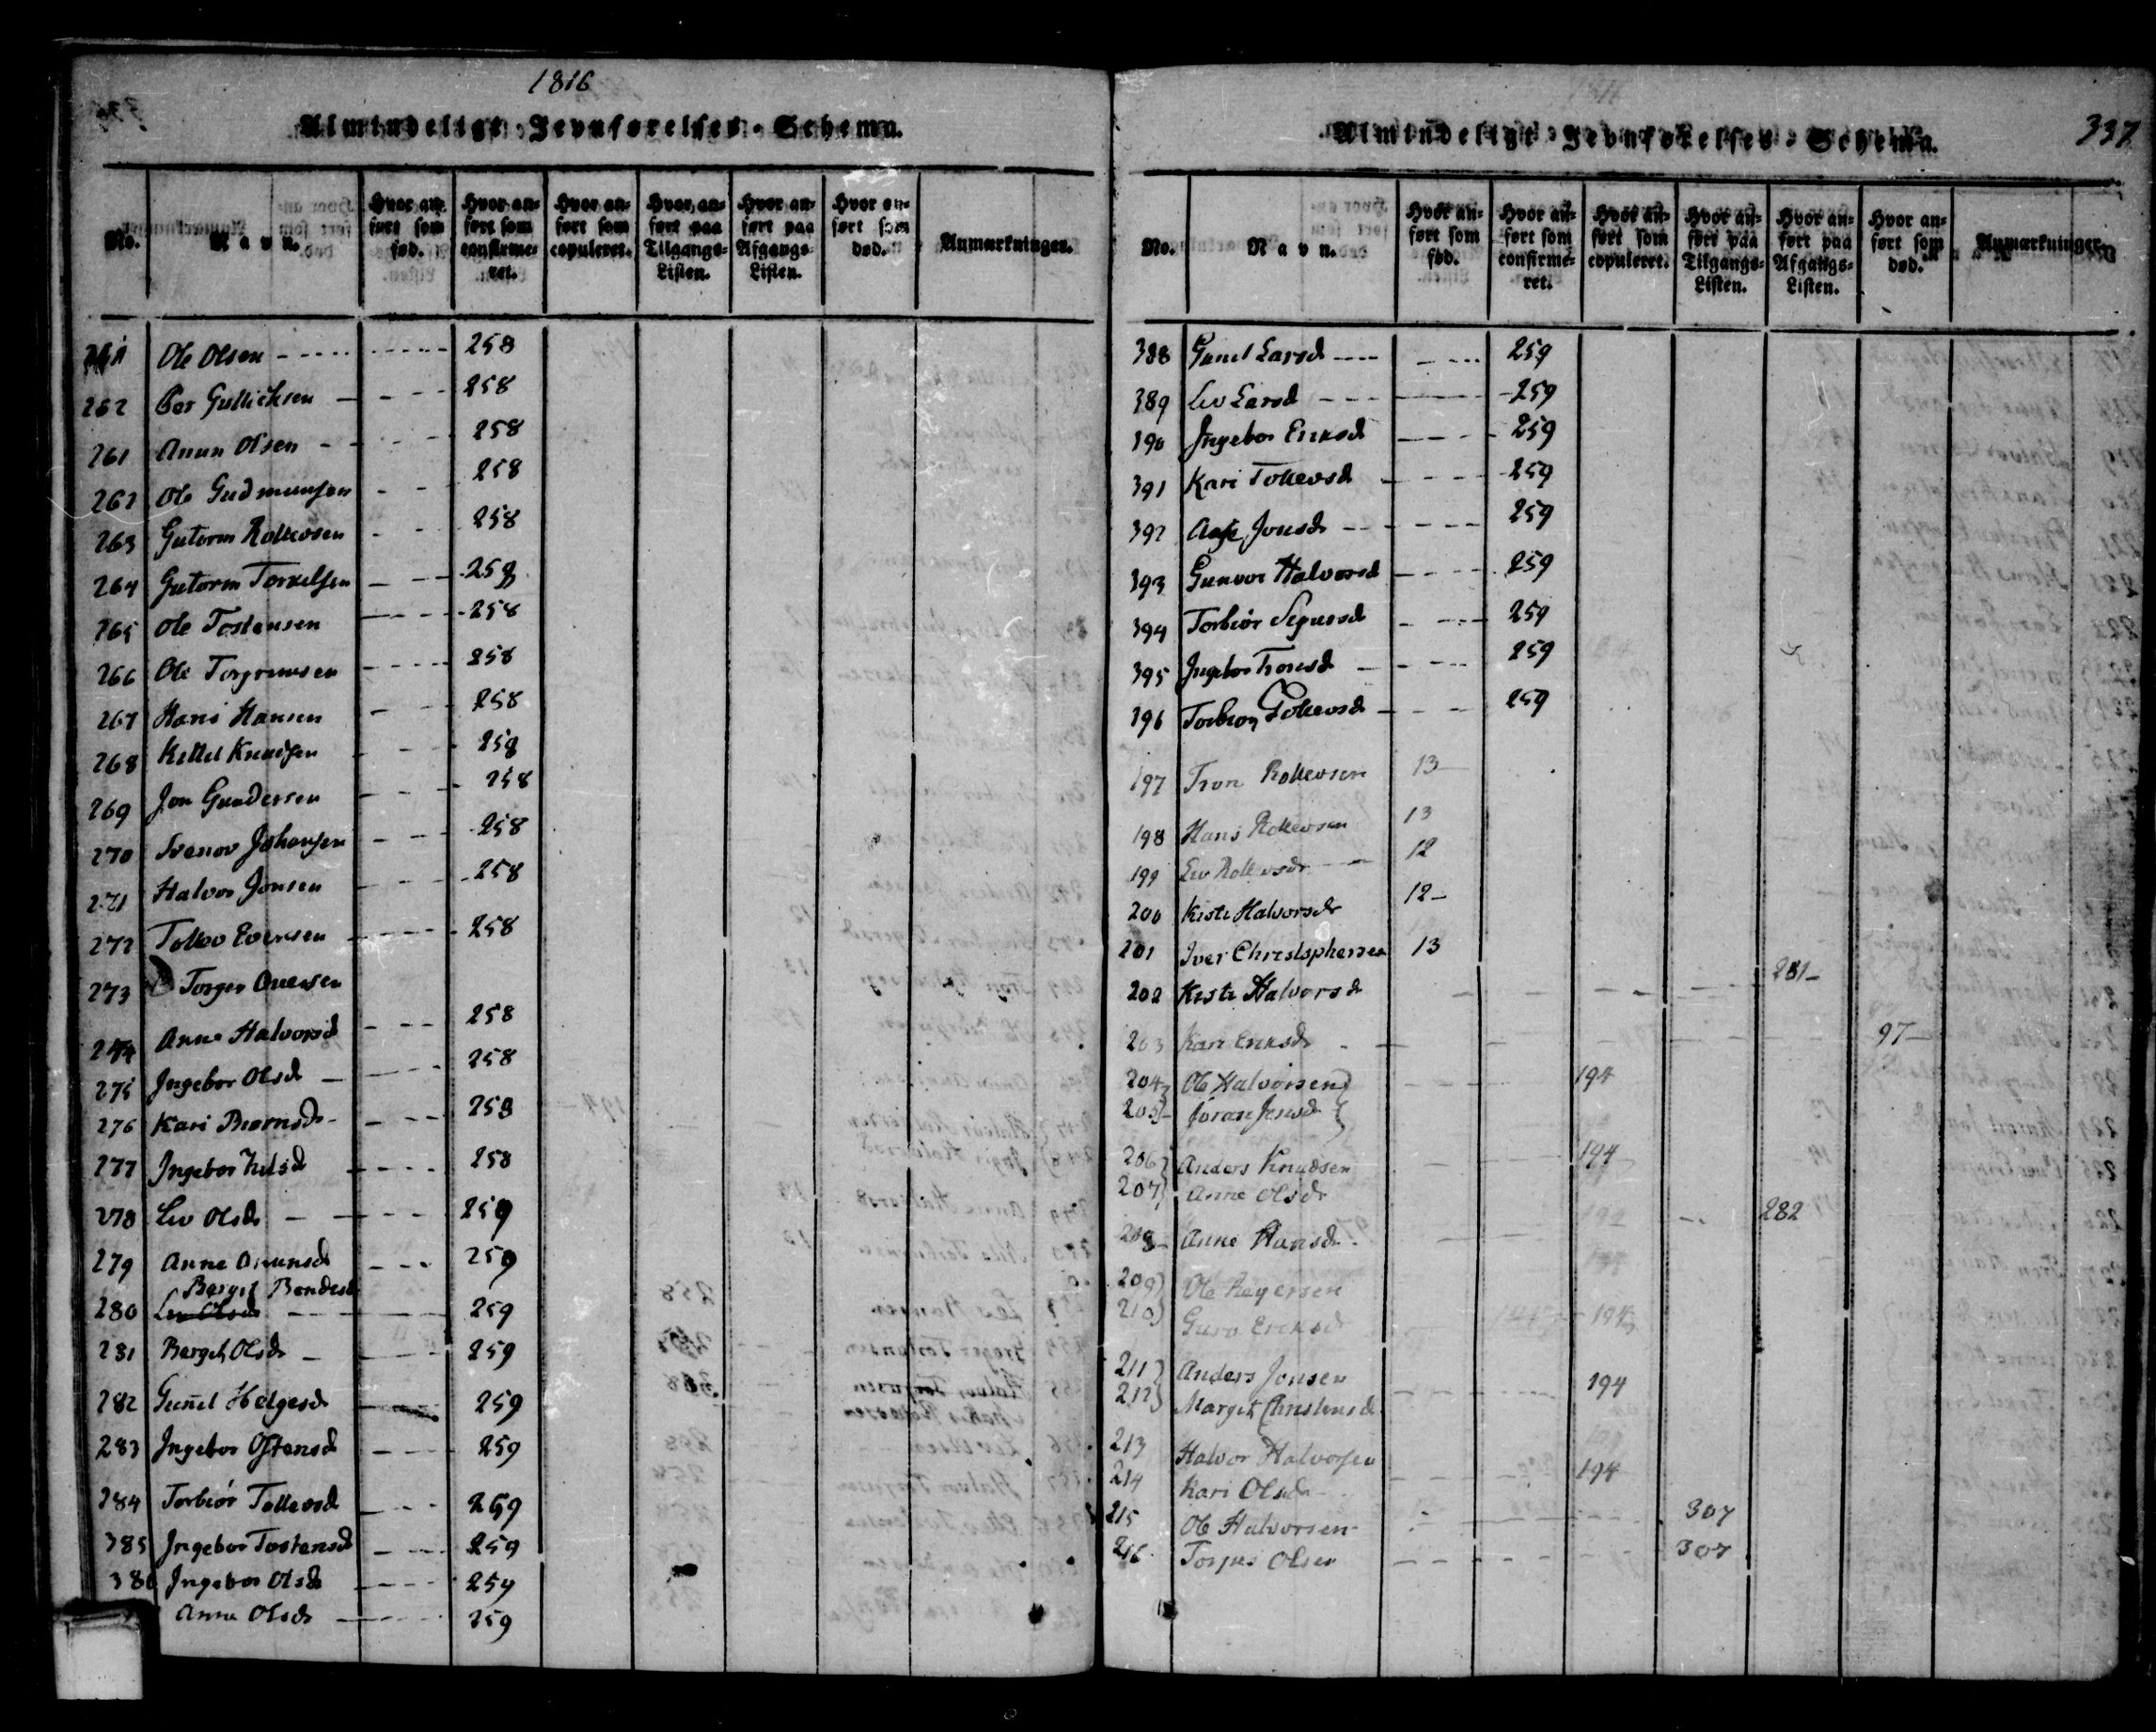 1816
Almindeligt Jevnførelses-Schema.
No. Navn. Hvor anført som fød. Hvor anført som confirmeret. Hvor anført som copuleret. Hvor anført paa Tilgangs-Listen. Hvor anført paa Afgangs-Listen. Hvor anført som død. Anmærkninger.
Ole Olsen 258
262 Per Gullichsen 258
261 Anun Olsen 258
262 Ole Gudmunsen 258
263 Gutorm Rollevsen 258
264 Gutorm Torkelsen 259
265 Ole Tostensen 258
266 Ole Torgrimsen 258
267 Hans Hansen 258
268 Kittel Knudsen 259
269 Jon Gundersen 258
270 Svenov Johansen 258
271 Halvor Jonsen 258
272 Tollev Evensen 258
273 Torger
274 Anne Halvorsd 258
275 Ingebor Olsd 258
276 Kari Biørnsd 258
277 Ingebor Nilsd 258
278 Liv Olsd 259
279 Anne Amunsd 259
Bergit Bendesd
280 Liv Olsd 259
281 Bergit Olsd 259
282 Guñil Helgesd 259
283 Ingebor Ostensd 259
284 Torbiør Tollevsd 259
385 Ingebor Tostensd 259
386 Ingebor Olsd 259
Anne Olsd 259
337
Almindeligt Jevnførelses-Schema.
No. Navn. Hvor anført som fød. Hvor anført som confirmeret. Hvor anført som copuleret. Hvor anført paa Tilgangs-Listen. Hvor anført paa Afgangs-Listen. Hvor anført som død. Anmærkninger.
388 Gunil Larsd 259
389 Liv Larsd 259
190 Ingebor Eriksd 259
391 Kari Tollevsd 259
392 Aase Jonsd 259
393 Gunvor Halvorsd 259
394 Torbiør Sigursd 259
395 Ingebor Tronsd 259
196 Torbior Tollevsd 259
197 Tron Rollevsen 13
198 Hans Rollevsen 13
199 Liv Rollevsdr 12
200 Kisti Halvorsdr 12
201 Iver Christophersen 13
202 Kisti Halvorsd 281
203 Kari Eriksdr 97
204 Ole Halvorsen 194
205 Jøran Jensd
206 Anders Knudsen 194
207 Anne Olsdr
208 Anne Hansdr 282
209 Ole Reyersen
210 Guro Eriksd 194
211 Anders Jonsen
212 Margit Christensd 194
213 Halvor Halvorsen
214 Kari Olsdr 194
215 Ole Halvorsen 307
216 Torjus Olsen 307